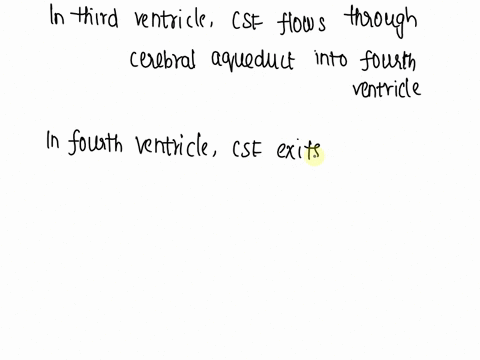 In third ventricle, CSF flows through
cerebral aqueduct into fourth
ventricle
In fourth ventricle, CSF exits